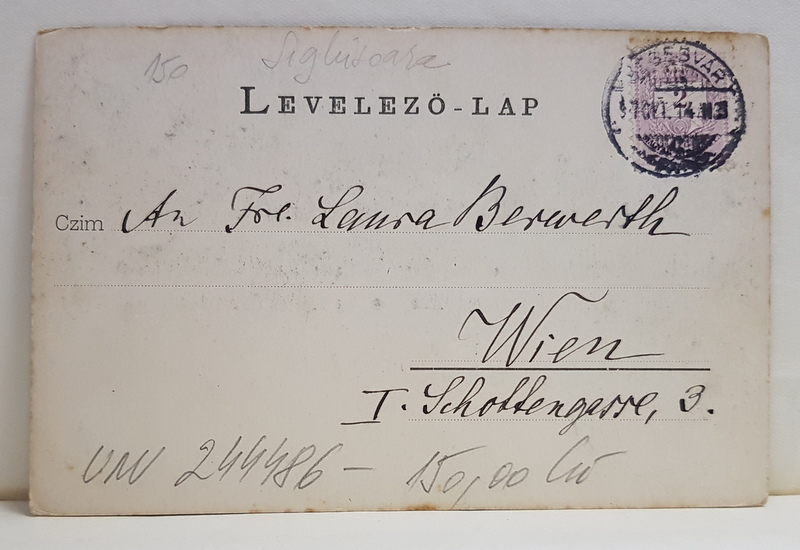 150 Sighisoara
LEVELEZÖ-LAP
SEGESVÁR
2
Czim An Frl. Laura Berwerth
Wien
I. Schottengasse, 3.
244486 - 150,00